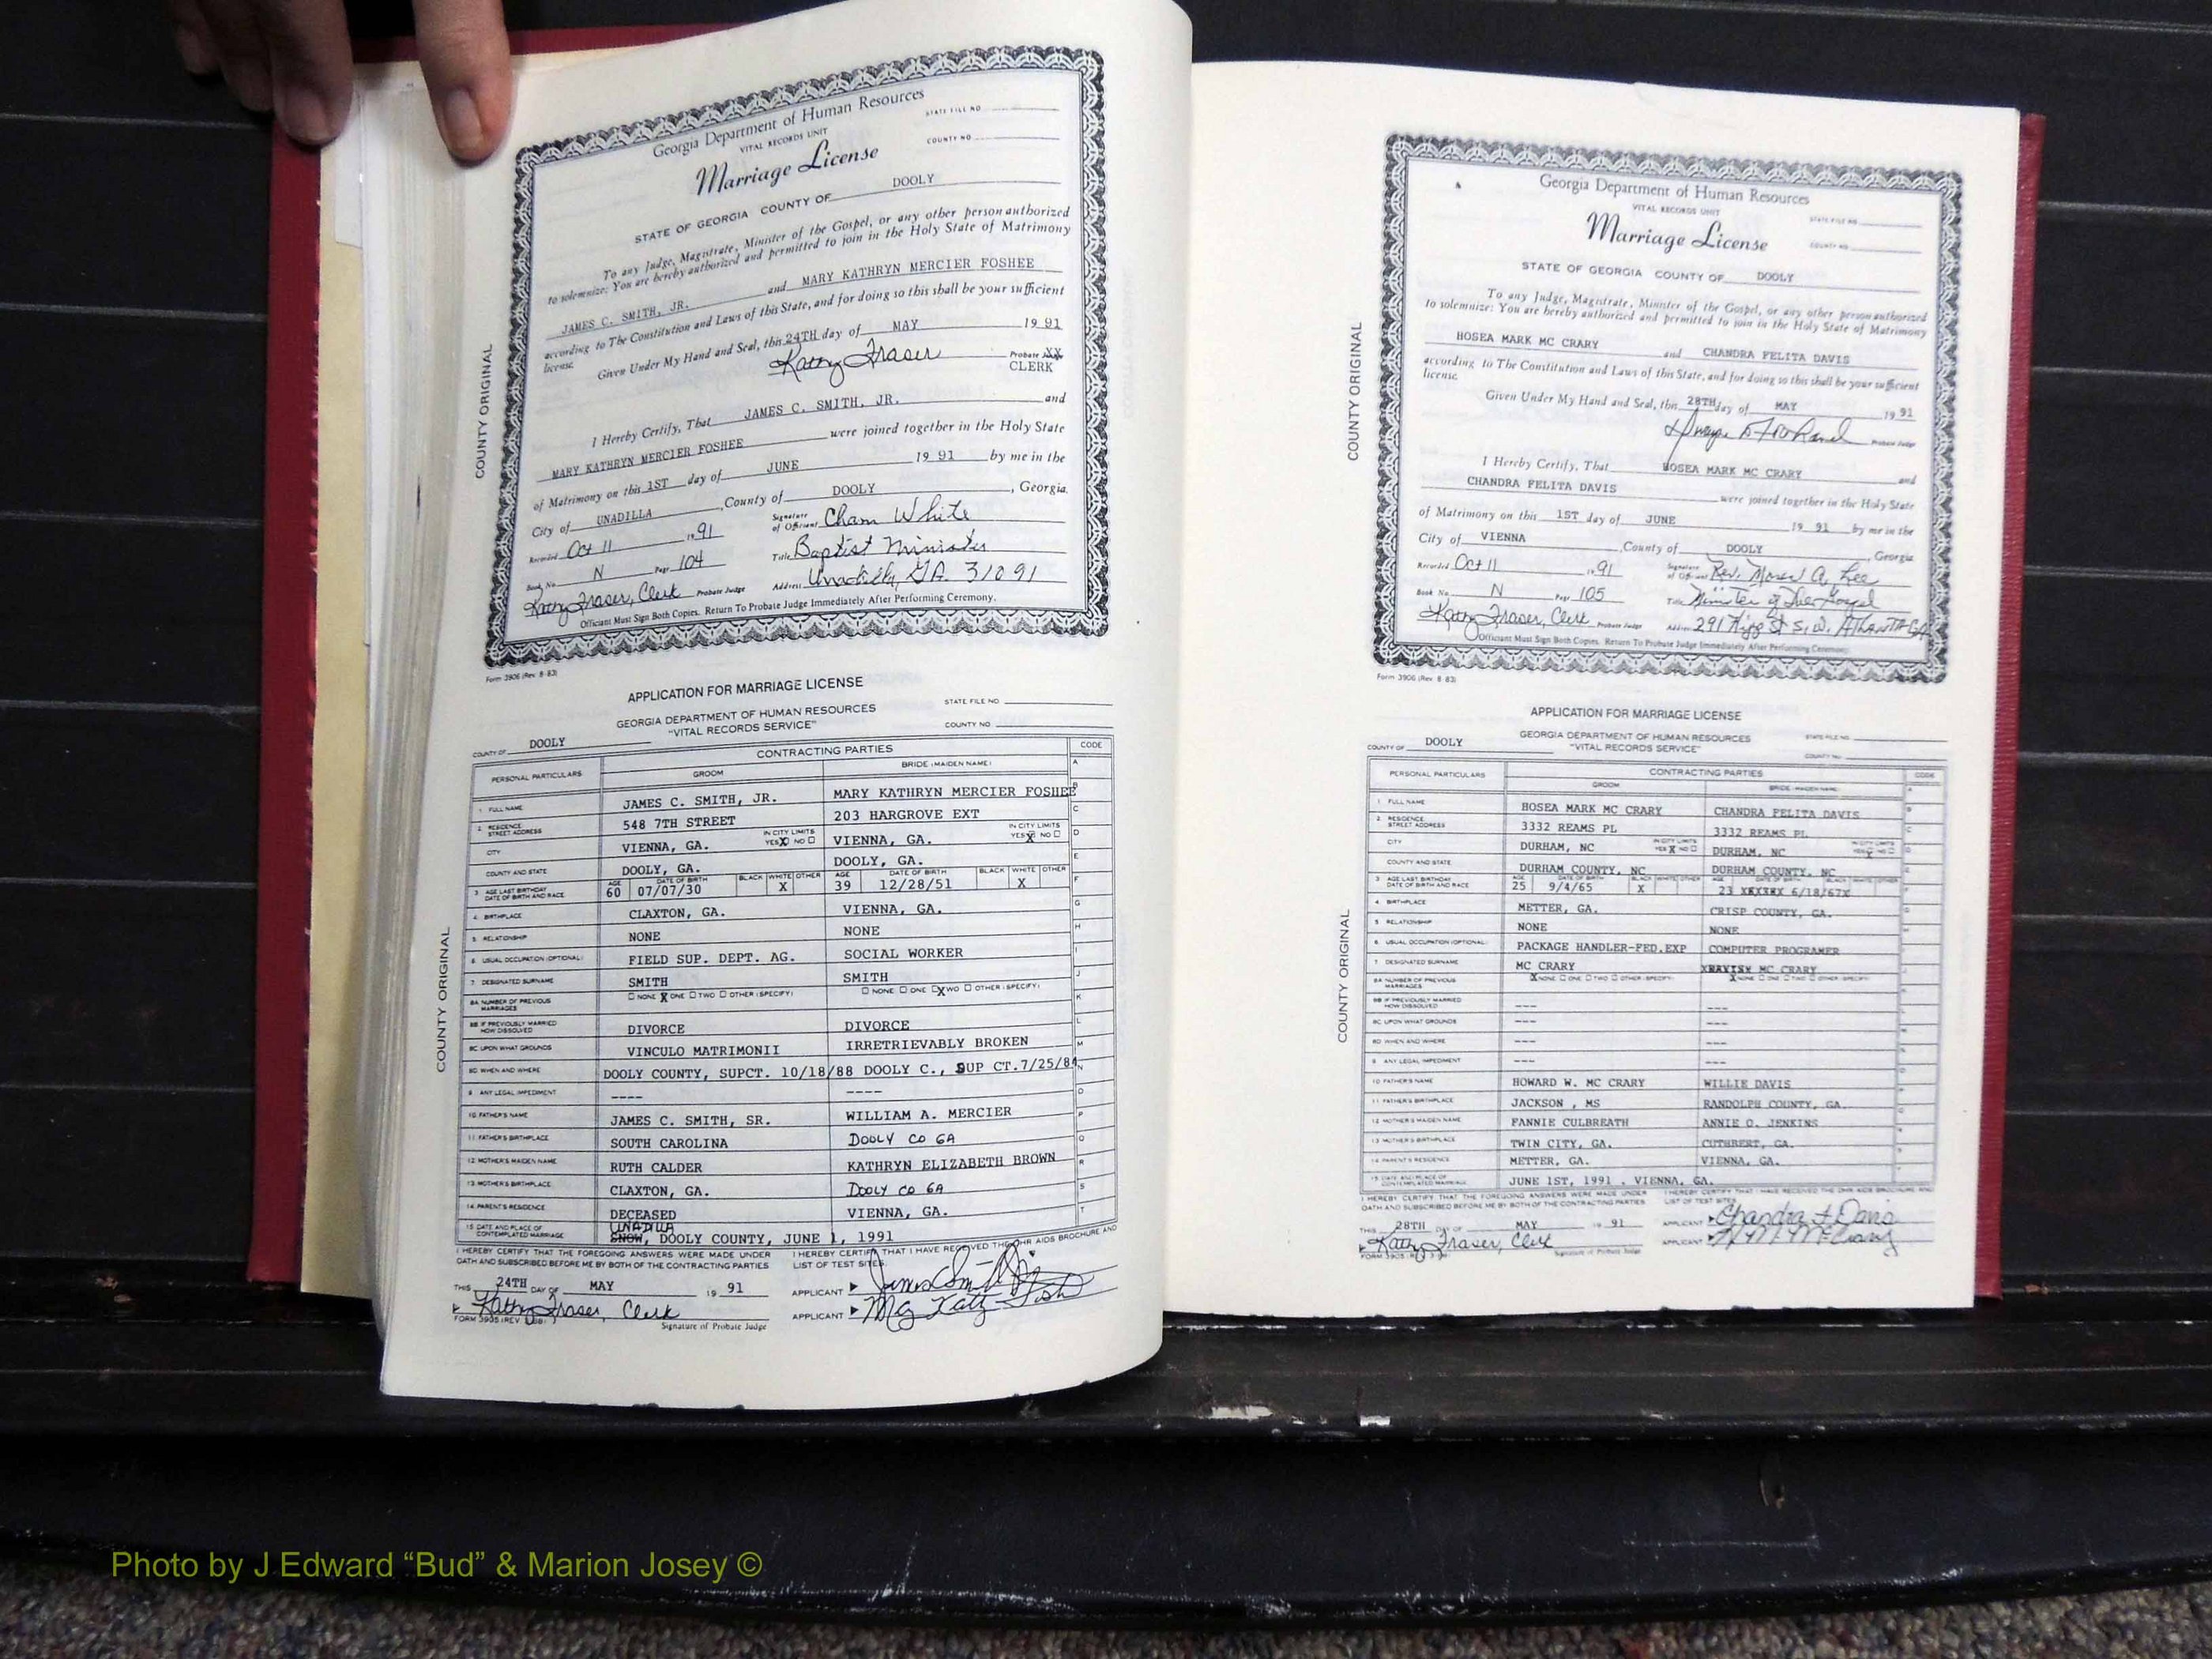 Georgia Department of Human Resources
VITAL RECORDS UNIT
Marriage License
STATE FILE NO
COUNTY NO
STATE OF GEORGIA COUNTY OF DOOLY
To any Judge, Magistrate, Minister of the Gospel, or any other person authorized
to solemnize: You are hereby authorized and permitted to join in the Holy State of Matrimony
JAMES C. SMITH, JR. and MARY KATHRYN MERCIER FOSHEE
according to The Constitution and Laws of this State, and for doing so this shall be your sufficient
license.
Given Under My Hand and Seal, this 24TH day of MAY 19 91
Kathy Fraser Probate Judge
CLERK
I Hereby Certify, That JAMES C. SMITH, JR. and
MARY KATHRYN MERCIER FOSHEE were joined together in the Holy State
of Matrimony on this 1ST day of JUNE 19 91 by me in the
City of UNADILLA, County of DOOLY, Georgia.
Recorded Oct 11 1991 Signature of Officiant Cham White
Book No N Page 104 Title Baptist Minister
Kathy Fraser, Clerk Probate Judge Address Unadilla, GA. 31091
Officiant Must Sign Both Copies. Return To Probate Judge Immediately After Performing Ceremony.
Form 3906 (Rev. 8-83)
COUNTY ORIGINAL
APPLICATION FOR MARRIAGE LICENSE
GEORGIA DEPARTMENT OF HUMAN RESOURCES
"VITAL RECORDS SERVICE"
STATE FILE NO.
COUNTY NO
COUNTY OF DOOLY
PERSONAL PARTICULARS CONTRACTING PARTIES CODE
GROOM BRIDE (MAIDEN NAME)
1 FULL NAME JAMES C. SMITH, JR. MARY KATHRYN MERCIER FOSHEE
2 RESIDENCE STREET ADDRESS 548 7TH STREET 203 HARGROVE EXT
CITY VIENNA, GA. IN CITY LIMITS YES X NO VIENNA, GA. IN CITY LIMITS YES X NO
COUNTY AND STATE DOOLY, GA. DOOLY, GA.
3 AGE LAST BIRTHDAY DATE OF BIRTH AND RACE AGE 60 DATE OF BIRTH 07/07/30 BLACK WHITE X OTHER AGE 39 DATE OF BIRTH 12/28/51 BLACK WHITE X OTHER
4 BIRTHPLACE CLAXTON, GA. VIENNA, GA.
5 RELATIONSHIP NONE NONE
6 USUAL OCCUPATION (OPTIONAL) FIELD SUP. DEPT. AG. SOCIAL WORKER
7 DESIGNATED SURNAME SMITH SMITH
8A NUMBER OF PREVIOUS MARRIAGES NONE X ONE TWO OTHER (SPECIFY) NONE ONE X TWO OTHER (SPECIFY)
8B IF PREVIOUSLY MARRIED HOW DISSOLVED DIVORCE DIVORCE
8C UPON WHAT GROUNDS VINCULO MATRIMONII IRRETRIEVABLY BROKEN
8D WHEN AND WHERE DOOLY COUNTY, SUPCT. 10/18/88 DOOLY C., SUP CT.7/25/84
9 ANY LEGAL IMPEDIMENT ---- ----
10 FATHER'S NAME JAMES C. SMITH, SR. WILLIAM A. MERCIER
11 FATHER'S BIRTHPLACE SOUTH CAROLINA DOOLY CO GA
12 MOTHER'S MAIDEN NAME RUTH CALDER KATHRYN ELIZABETH BROWN
13 MOTHER'S BIRTHPLACE CLAXTON, GA. DOOLY CO GA
14 PARENT'S RESIDENCE DECEASED VIENNA, GA.
UNADILLA
15 DATE AND PLACE OF CONTEMPLATED MARRIAGE SNOW, DOOLY COUNTY, JUNE 1, 1991
I HEREBY CERTIFY THAT THE FOREGOING ANSWERS WERE MADE UNDER
OATH AND SUBSCRIBED BEFORE ME BY BOTH OF THE CONTRACTING PARTIES
I HEREBY CERTIFY THAT I HAVE RECEIVED THE DHR AIDS BROCHURE AND
LIST OF TEST SITES.
THIS 24TH DAY OF MAY 19 91 APPLICANT James C Smith Jr
Kathy Fraser, Clerk APPLICANT
Signature of Probate Judge
COUNTY ORIGINAL
Georgia Department of Human Resources
VITAL RECORDS UNIT
Marriage License
STATE FILE NO
COUNTY NO
STATE OF GEORGIA COUNTY OF DOOLY
To any Judge, Magistrate, Minister of the Gospel, or any other person authorized
to solemnize: You are hereby authorized and permitted to join in the Holy State of Matrimony
HOSEA MARK MC CRARY and CHANDRA FELITA DAVIS
according to The Constitution and Laws of this State, and for doing so this shall be your sufficient
license.
Given Under My Hand and Seal, this 28TH day of MAY 19 91
Probate Judge
I Hereby Certify, That HOSEA MARK MC CRARY and
CHANDRA FELITA DAVIS were joined together in the Holy State
of Matrimony on this 1ST day of JUNE 19 91 by me in the
City of VIENNA, County of DOOLY, Georgia
Recorded Oct 11 1991 Signature of Officiant Rev. Moses A. Lee
Book No. N Page 105 Title Minister of The Gospel
Kathy Fraser, Clerk Probate Judge Address 291 St S.W. ATLANTA GA
Officiant Must Sign Both Copies. Return To Probate Judge Immediately After Performing Ceremony.
Form 3906 (Rev. 8-83)
COUNTY ORIGINAL
APPLICATION FOR MARRIAGE LICENSE
GEORGIA DEPARTMENT OF HUMAN RESOURCES
"VITAL RECORDS SERVICE"
STATE FILE NO.
COUNTY NO.
COUNTY OF DOOLY
PERSONAL PARTICULARS CONTRACTING PARTIES CODE
GROOM BRIDE (MAIDEN NAME)
1 FULL NAME HOSEA MARK MC CRARY CHANDRA FELITA DAVIS
2 RESIDENCE STREET ADDRESS 3332 REAMS PL 3332 REAMS PL
CITY DURHAM, NC IN CITY LIMITS YES X NO DURHAM, NC IN CITY LIMITS YES X NO
COUNTY AND STATE DURHAM COUNTY, NC DURHAM COUNTY, NC
3 AGE LAST BIRTHDAY DATE OF BIRTH AND RACE 25 9/4/65 X 23 6/18/67 X
4 BIRTHPLACE METTER, GA. CRISP COUNTY, GA.
5 RELATIONSHIP NONE NONE
6 USUAL OCCUPATION (OPTIONAL) PACKAGE HANDLER-FED.EXP COMPUTER PROGRAMER
7 DESIGNATED SURNAME MC CRARY MC CRARY
8A NUMBER OF PREVIOUS MARRIAGES X NONE ONE TWO OTHER (SPECIFY) X NONE ONE TWO OTHER (SPECIFY)
8B IF PREVIOUSLY MARRIED HOW DISSOLVED --- ---
8C UPON WHAT GROUNDS --- ---
8D WHEN AND WHERE --- ---
9 ANY LEGAL IMPEDIMENT --- ---
10 FATHER'S NAME HOWARD W. MC CRARY WILLIE DAVIS
11 FATHER'S BIRTHPLACE JACKSON , MS RANDOLPH COUNTY, GA.
12 MOTHER'S MAIDEN NAME FANNIE CULBREATH ANNIE O. JENKINS
13 MOTHER'S BIRTHPLACE TWIN CITY, GA. CUTHBERT, GA.
14 PARENT'S RESIDENCE METTER, GA. VIENNA, GA.
15 DATE AND PLACE OF CONTEMPLATED MARRIAGE JUNE 1ST, 1991 , VIENNA, GA.
I HEREBY CERTIFY THAT THE FOREGOING ANSWERS WERE MADE UNDER
OATH AND SUBSCRIBED BEFORE ME BY BOTH OF THE CONTRACTING PARTIES
I HEREBY CERTIFY THAT I HAVE RECEIVED THE DHR AIDS BROCHURE AND
LIST OF TEST SITES
THIS 28TH DAY OF MAY 19 91 APPLICANT Chandra F Davis
Kathy Fraser, Clerk APPLICANT H M McCrary
Signature of Probate Judge
COUNTY ORIGINAL
Photo by J Edward “Bud” & Marion Josey ©